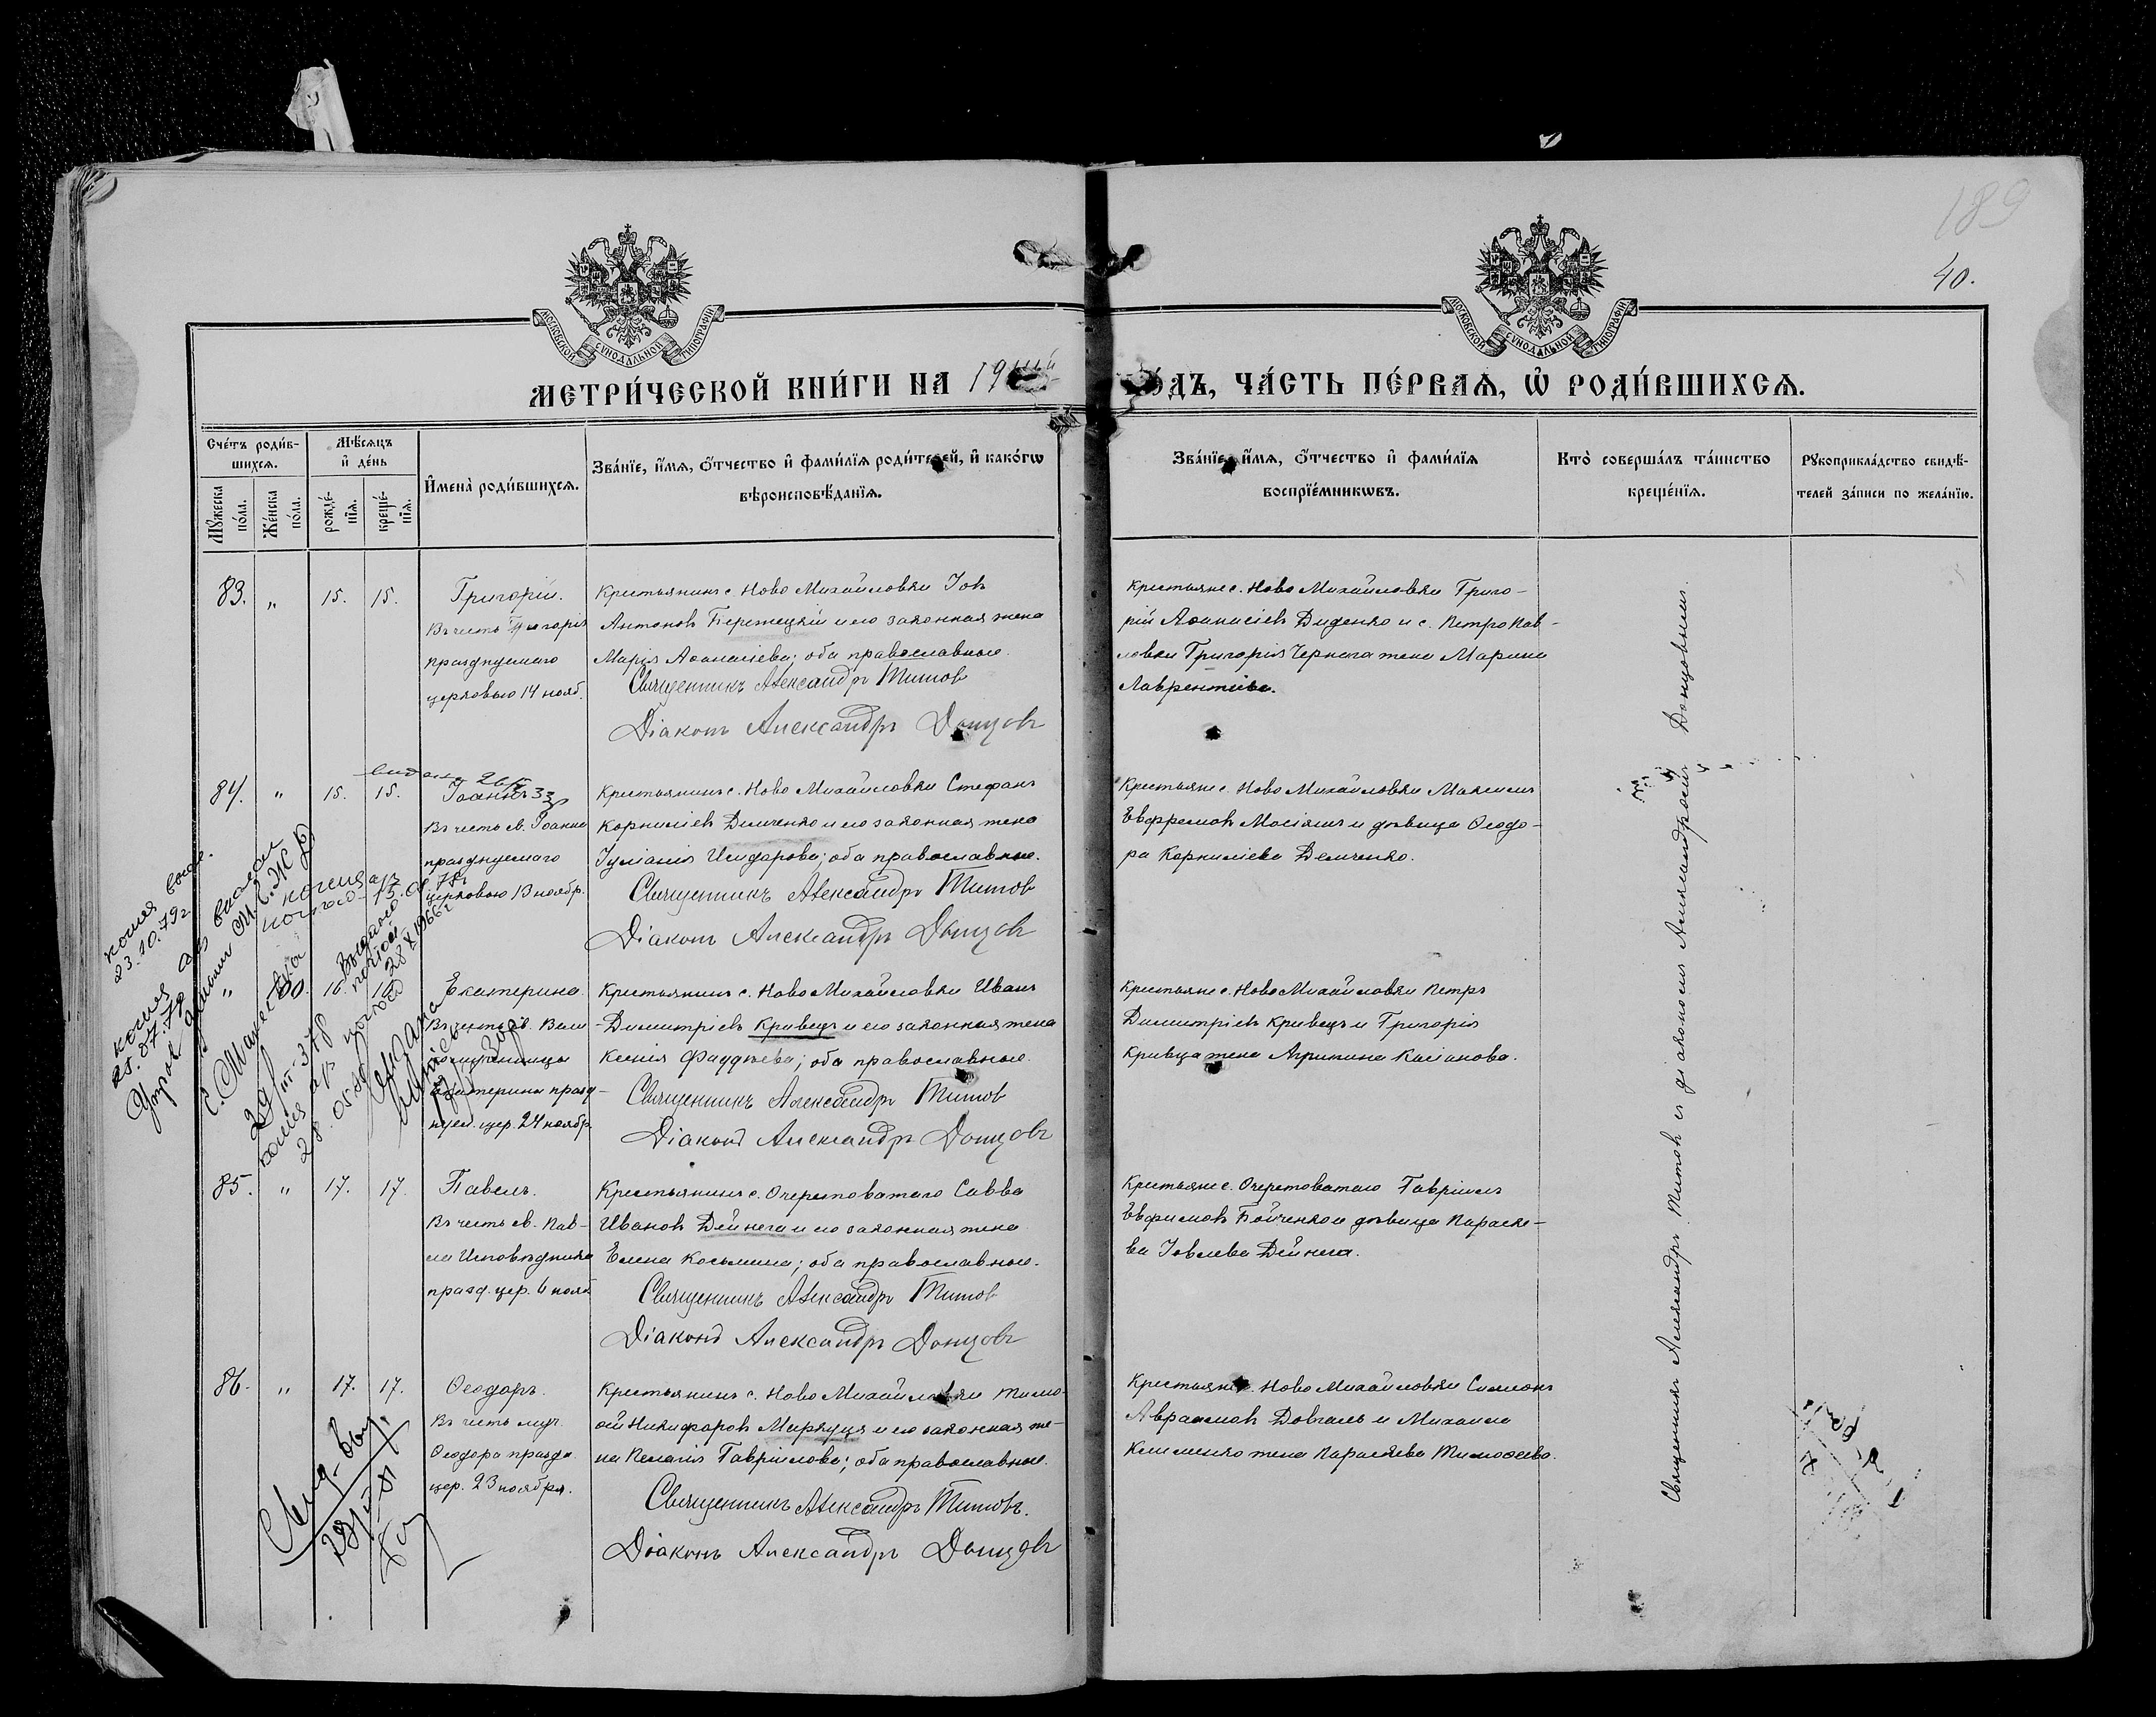 189
40.
МОСКОВСКОЙ СѴНОДАЛЬНОЙ ТИПОГРАФІИ
МОСКОВСКОЙ СѴНОДАЛЬНОЙ ТИПОГРАФІИ
МЕТРИ́ЧЕСКОЙ КНИ́ГИ НА 19
ЧА́СТЬ ПЕ́РВАЯ, Ѡ РОДИ́ВШИХСЯ.
Сче́тъ роди́в-
шихся.
Мѣ́сяцъ
и де́нь
Мꙋжеска по́ла.
Же́нска по́ла.
рожде́-нїя.
креще́-нїя.
И҆мена̀ роди́вшихся.
Зва́нїе, и҆́мя, ѻ҆́тчество и҆ фами́лїя роди́телей, и҆ како́гѡ
вѣроисповѣ́данїя.
Зва́нїе, и҆́мя, ѻ҆́тчество и҆ фами́лїя
воспрїе́мникѡвъ.
Кто̀ соверша́лъ та́инство
креще́нїя.
Рꙋкоприкла́дство свидѣ́-
телей за́писи по жела́нїю.
83. " 15. 15. Григорій.
Въ честь Григорія
празднуемаго
церковью 14 нояб.
Крестьянинъ с. Ново Михайловки Іовъ
Антоновъ Бережецкій и его законная жена
Марія Аѳанасіева; оба православные.
Священникъ Александръ Титов
Діаконъ Александръ Донцовъ
Крестьяне с. Ново Михайловки Григо-
рій Аѳанасіевъ Диденко и с. Петро Пав-
ловки Григорія Чернега жена Марина
Лаврентіева.
84. " 15. 15. Іоаннъ
Въ честь св. Іоанна
празднуемаго
церковью 13 ноябр.
Крестьянинъ с. Ново Михайловки Стефанъ
Корниліевъ Демченко и его законная жена
Іуліанія Исидорова; оба православные.
Священникъ Александръ Титов
Діаконъ Александръ Донцовъ
Крестьяне с. Ново Михайловки Максимъ
Евфремовъ Мосіяшъ и дѣвица Ѳеодо-
ра Корниліева Демченко.
" 60. 16. 16. Екатерина
Въ честь св. Вели
комученицы
Екатерины празд-
нуем. цер. 24 ноябр.
Крестьянинъ с. Ново Михайловки Иванъ
Димитріевъ Кривецъ и его законная жена
Ксенія Фаддѣева; оба православные.
Священникъ Александръ Титов
Діаконъ Александръ Донцовъ
Крестьяне с. Ново Михайловки Петръ
Димитріевъ Кривецъ и Григорія
Кривца жена Агрипина Касіанова.
85. " 17. 17. Павелъ.
Въ честь св. Пав-
ла Исповѣдника
празд. цер. 6 нояб
Крестьянинъ с. Очеретоватаго Савва
Ивановъ Дейнега и его законная жена
Елена Косьмина; оба православные.
Священникъ Александръ Титов
Діаконъ Александръ Донцовъ
Крестьяне с. Очеретоватаго Гавріилъ
Евфимовъ Бойченко и дѣвица Параске-
ва Іовлева Дейнега.
86. " 17. 17. Ѳеодоръ.
Въ честь муч.
Ѳеодора празд.
цер. 23 ноября.
Крестьянинъ с. Ново Михайловки Тимо-
ѳей Никифоровъ Миркуця и его законная же-
на Пелагія Гавріилова; оба православные.
Священникъ Александръ Титовъ.
Діаконъ Александръ Донцовъ
Крестьяне с. Ново Михайловки Симеонъ
Авраамовъ Довгаль и Михаила
Клименко жена Параскева Тимоѳеева.
Священникъ Александръ Титовъ съ діакономъ Александромъ Донцовымъ.
копия выд.
23.10.79г